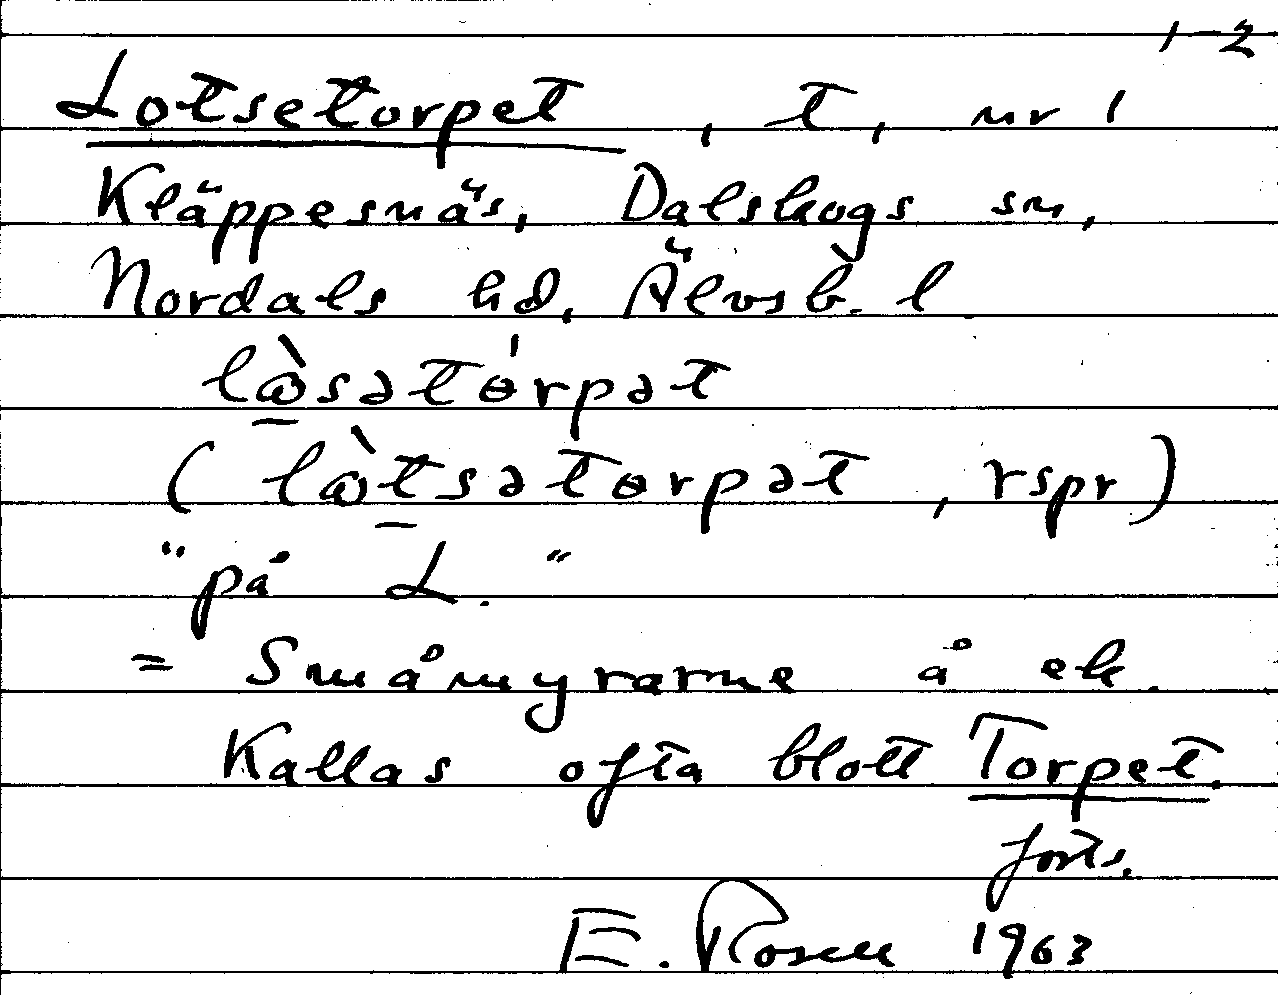 1-2
Lotsetorpet, t, nr 1
Kläppesnäs, Dalskogs sn,
Nordals hd, Älvsb. l
lὼ̱sətɵ́rpət
(lὼṯsətɵrpət, rspr)
"på L."
= Småmyrarne å ek.
Kallas ofta blott Torpet.
forts.
E. Rosell 1963